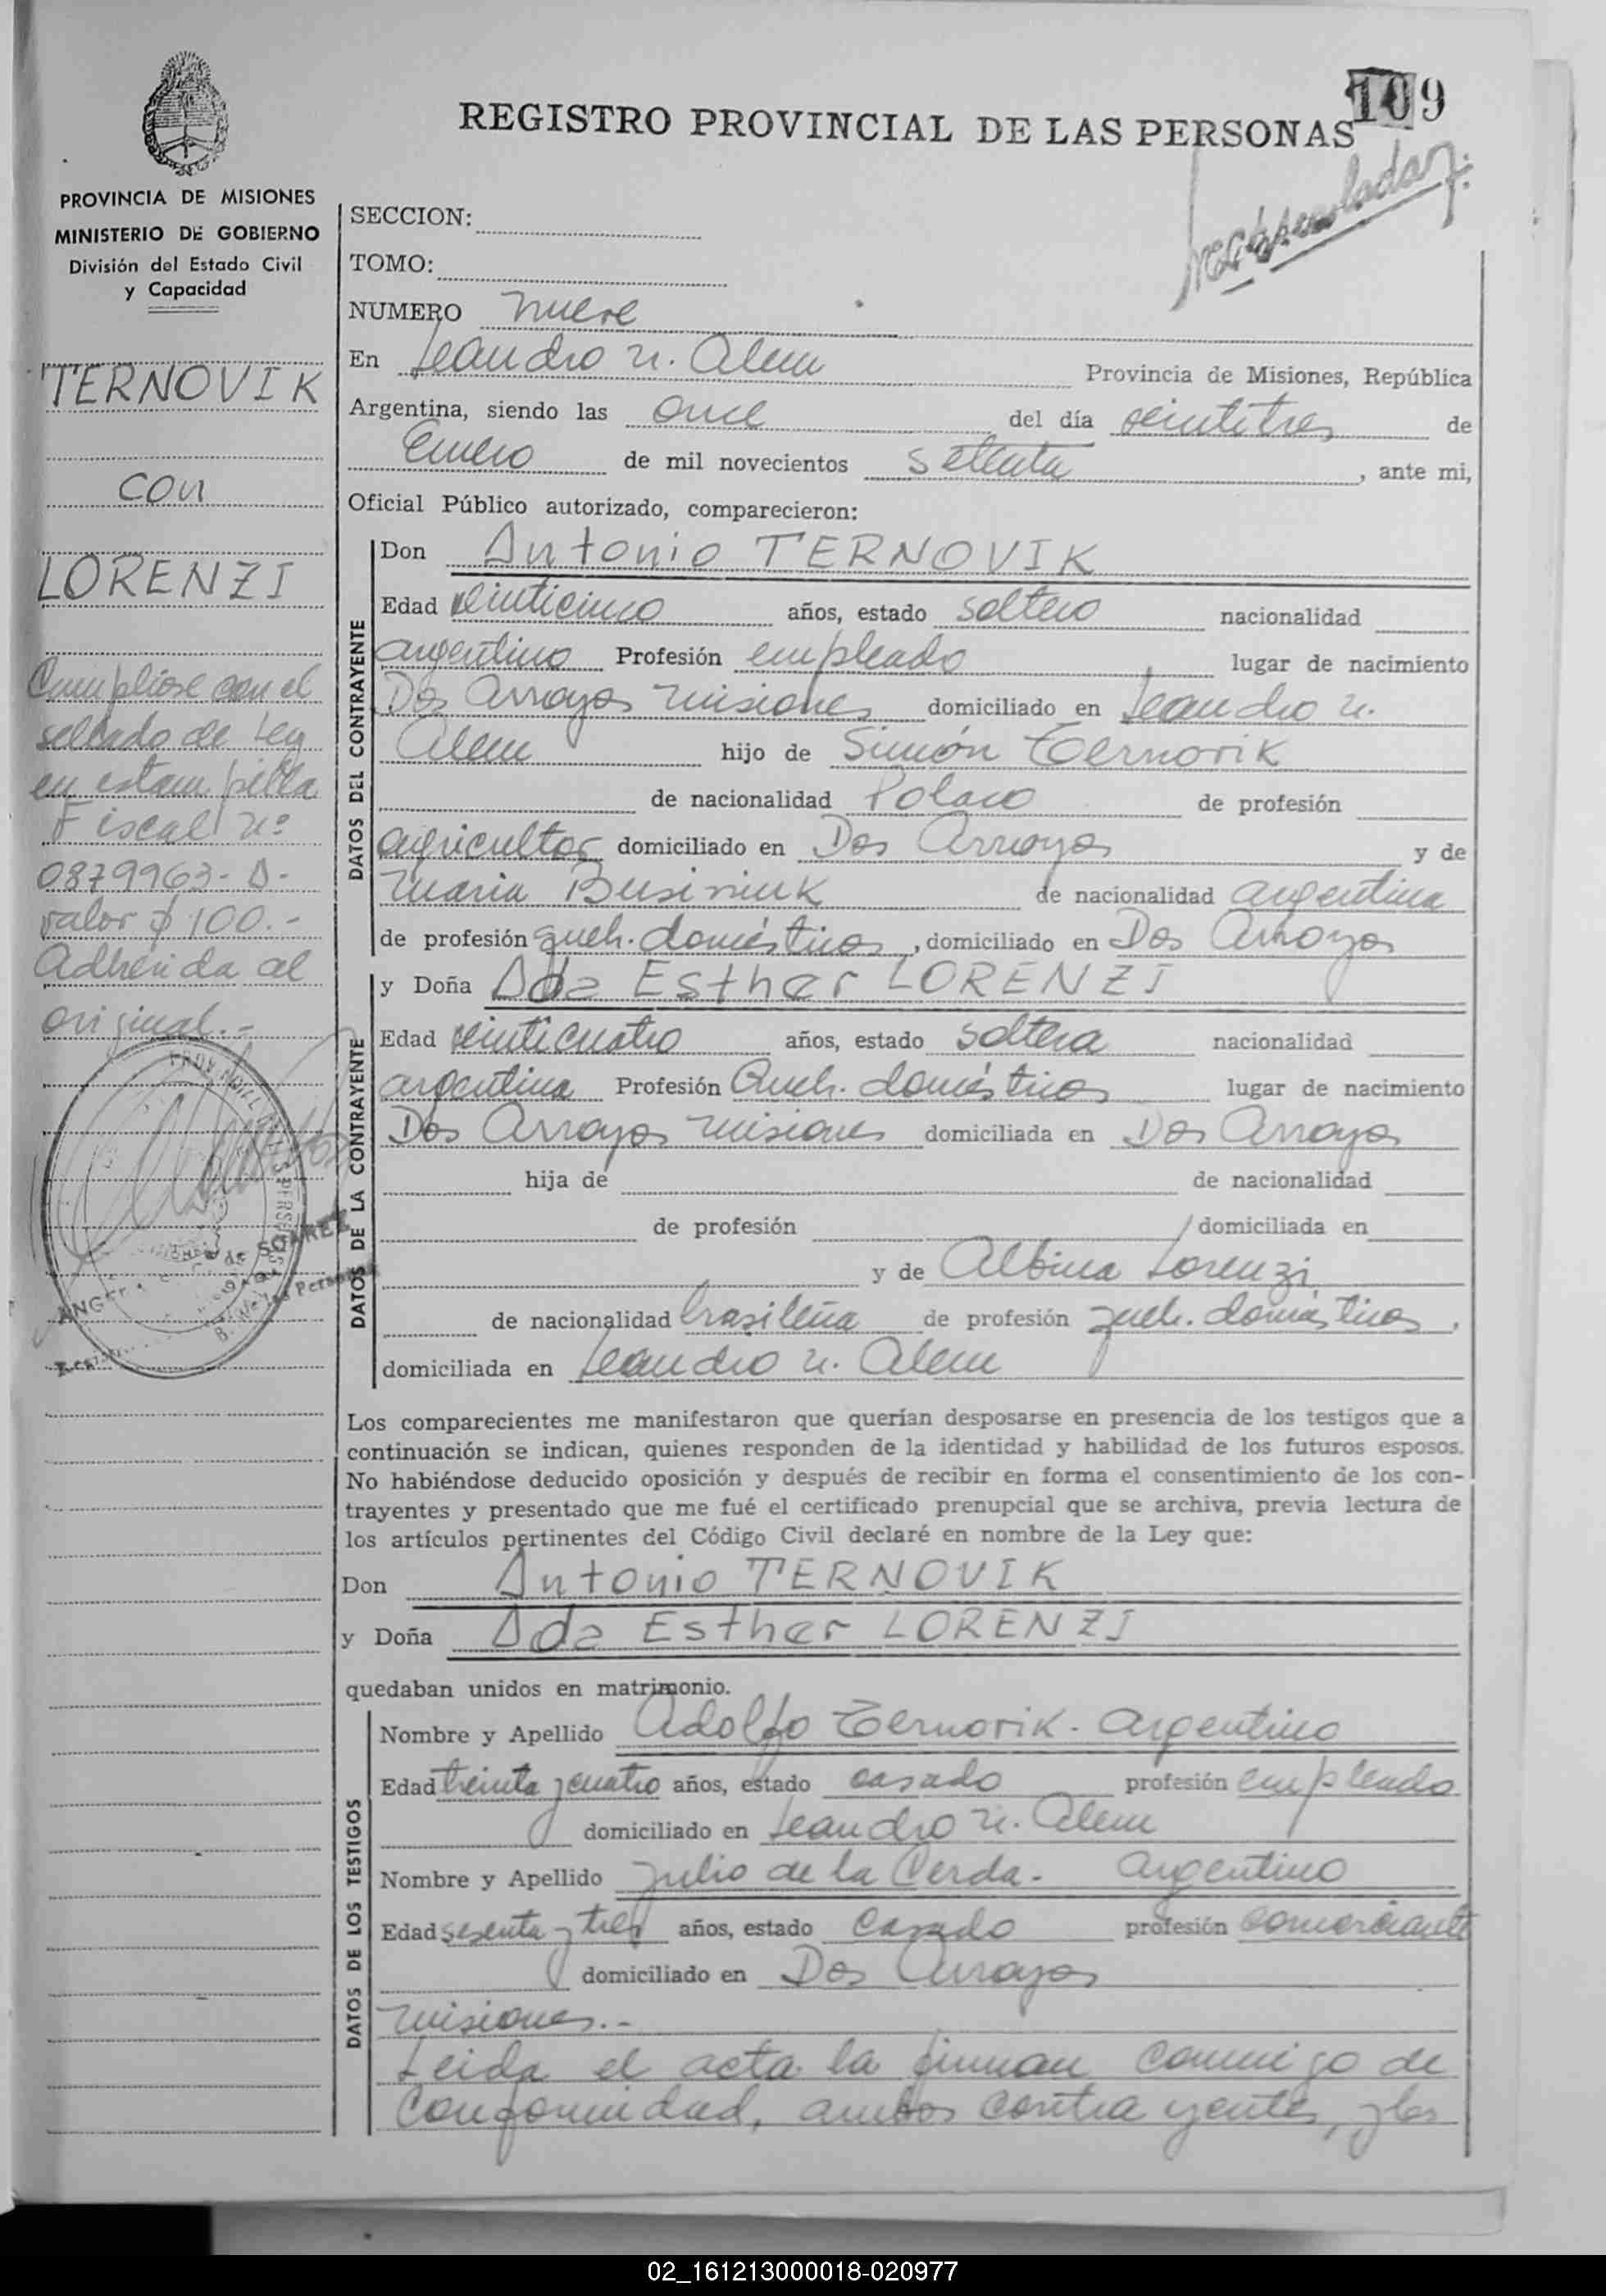 109
REGISTRO PROVINCIAL DE LAS PERSONAS
PROVINCIA DE MISIONES
MINISTERIO DE GOBIERNO
División del Estado Civil
y Capacidad
TERNOVIK
con
LORENZI
Cumpliose con el
sellado de Ley
en estampilla
Fiscal nº
0879963-D-
valor $ 100.-
Adherida al
original.-
SECCION:
TOMO:
NUMERO nueve
En Leandro N. Alem Provincia de Misiones, República
Argentina, siendo las once del día veintitres de
Enero de mil novecientos setenta, ante mi,
Oficial Público autorizado, comparecieron:
DATOS DEL CONTRAYENTE
Don Antonio TERNOVIK
Edad veinticinco años, estado soltero nacionalidad
argentino Profesión empleado lugar de nacimiento
Dos Arroyos Misiones domiciliado en Leandro N.
Alem hijo de Simón Ternovik
de nacionalidad Polaco de profesión
agricultor domiciliado en Dos Arroyos y de
Maria de nacionalidad argentina
de profesión queh. domésticos, domiciliado en Dos Arroyos
DATOS DE LA CONTRAYENTE
y Doña Ada Esther LORENZI
Edad veinticuatro años, estado soltera nacionalidad
argentina Profesión Queh. domésticos lugar de nacimiento
Dos Arroyos Misiones domiciliada en Dos Arroyos
hija de de nacionalidad
de profesión domiciliada en
y de Albina Lorenzi
de nacionalidad brasileña de profesión queh. domésticos,
domiciliada en Leandro N. Alem
Los comparecientes me manifestaron que querían desposarse en presencia de los testigos que a
continuación se indican, quienes responden de la identidad y habilidad de los futuros esposos.
No habiéndose deducido oposición y después de recibir en forma el consentimiento de los con-
trayentes y presentado que me fué el certificado prenupcial que se archiva, previa lectura de
los artículos pertinentes del Código Civil declaré en nombre de la Ley que:
Don Antonio TERNOVIK
y Doña Ada Esther LORENZI
quedaban unidos en matrimonio.
DATOS DE LOS TESTIGOS
Nombre y Apellido Adolfo Ternovik. Argentino
Edad treinta y cuatro años, estado casado profesión empleado
domiciliado en Leandro N. Alem
Nombre y Apellido Julio de la Cerda. Argentino
Edad sesenta y tres años, estado casado profesión comerciante
domiciliado en Dos Arroyos
Misiones.-
Leida el acta la firman conmigo de
conformidad, ambos contrayentes, y los
02_161213000018-020977